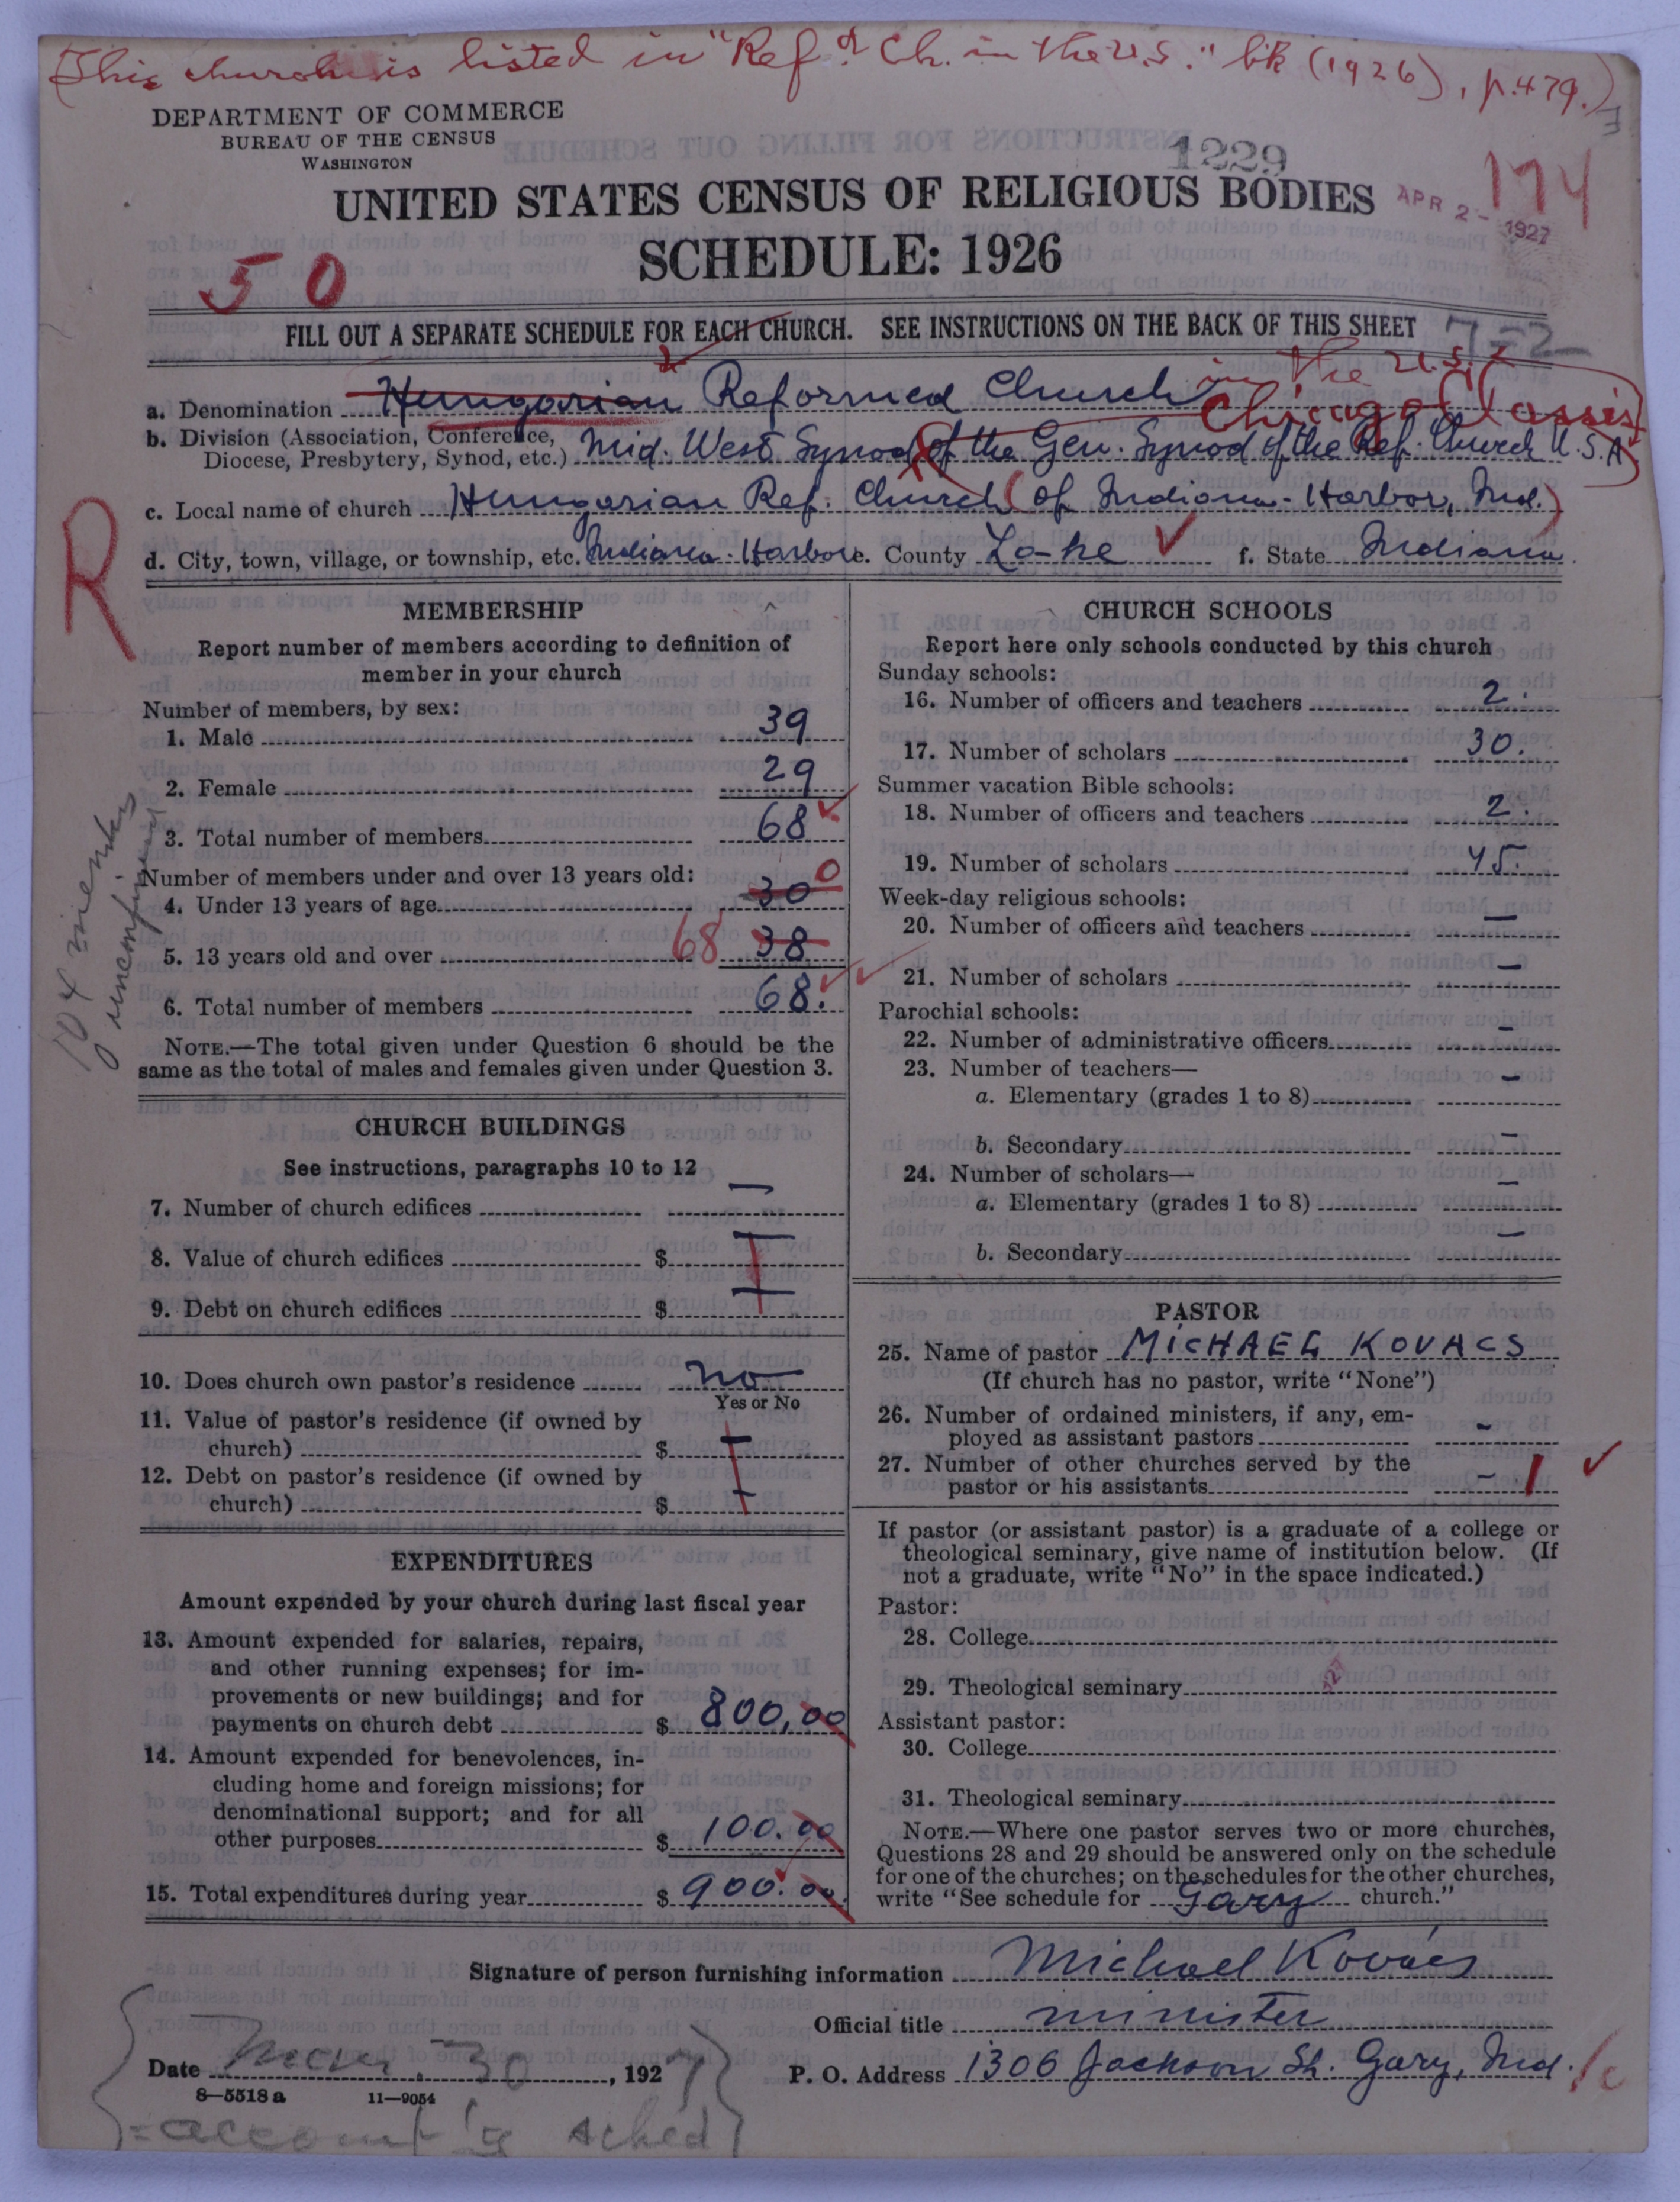 (This church is listed in "Ref'd Ch. in the U.S." bk (1926), p. 479.)
DEPARTMENT OF COMMERCE
BUREAU OF THE CENSUS
WASHINGTON
1229
174
APR 2 - 1927
UNITED STATES CENSUS OF RELIGIOUS BODIES
SCHEDULE: 1926
50
FILL OUT A SEPARATE SCHEDULE FOR EACH CHURCH. SEE INSTRUCTIONS ON THE BACK OF THIS SHEET
7-22
in the U.S.
a. Denomination Hungarian Reformed Church
Chicago Classis
b. Division (Association, Conference, Diocese, Presbytery, Synod, etc.) Mid. West Synod of the Gen. Synod of the Ref. Church U.S.A
R
c. Local name of church Hungarian Ref. Church (of Indiana-Harbor, Ind.)
d. City, town, village, or township, etc. Indiana-Harbor e. County Lake f. State Indiana
MEMBERSHIP
Report number of members according to definition of
member in your church
Number of members, by sex:
1. Male 39
2. Female 29
3. Total number of members 68
Number of members under and over 13 years old:
4. Under 13 years of age 30 0
5. 13 years old and over 68 38
6. Total number of members 68.
NOTE.—The total given under Question 6 should be the
same as the total of males and females given under Question 3.
104 members
unconfirmed
CHURCH BUILDINGS
See instructions, paragraphs 10 to 12
7. Number of church edifices —
8. Value of church edifices $ —
9. Debt on church edifices $ —
10. Does church own pastor's residence no
Yes or No
11. Value of pastor's residence (if owned by
church) $ —
12. Debt on pastor's residence (if owned by
church) $ —
EXPENDITURES
Amount expended by your church during last fiscal year
13. Amount expended for salaries, repairs,
and other running expenses; for im-
provements or new buildings; and for
payments on church debt $ 800,00
14. Amount expended for benevolences, in-
cluding home and foreign missions; for
denominational support; and for all
other purposes $ 100.00
15. Total expenditures during year $ 900.00.
CHURCH SCHOOLS
Report here only schools conducted by this church
Sunday schools:
16. Number of officers and teachers 2.
17. Number of scholars 30.
Summer vacation Bible schools:
18. Number of officers and teachers 2.
19. Number of scholars 45.
Week-day religious schools:
20. Number of officers and teachers —
21. Number of scholars —
Parochial schools:
22. Number of administrative officers —
23. Number of teachers—
a. Elementary (grades 1 to 8) —
b. Secondary —
24. Number of scholars—
a. Elementary (grades 1 to 8) —
b. Secondary —
PASTOR
25. Name of pastor MICHAEL KOVACS
(If church has no pastor, write "None")
26. Number of ordained ministers, if any, em-
ployed as assistant pastors -
27. Number of other churches served by the
pastor or his assistants - 1
If pastor (or assistant pastor) is a graduate of a college or
theological seminary, give name of institution below. (If
not a graduate, write "No" in the space indicated.)
Pastor:
28. College
29. Theological seminary
Assistant pastor:
30. College
31. Theological seminary
NOTE.—Where one pastor serves two or more churches,
Questions 28 and 29 should be answered only on the schedule
for one of the churches; on the schedules for the other churches,
write "See schedule for Gary church."
Signature of person furnishing information Michael Kovács
Official title minister
Date Mch. 30, 1927
P. O. Address 1306 Jackson St. Gary, Ind.
8—5518 a 11—9054
= account'g sched